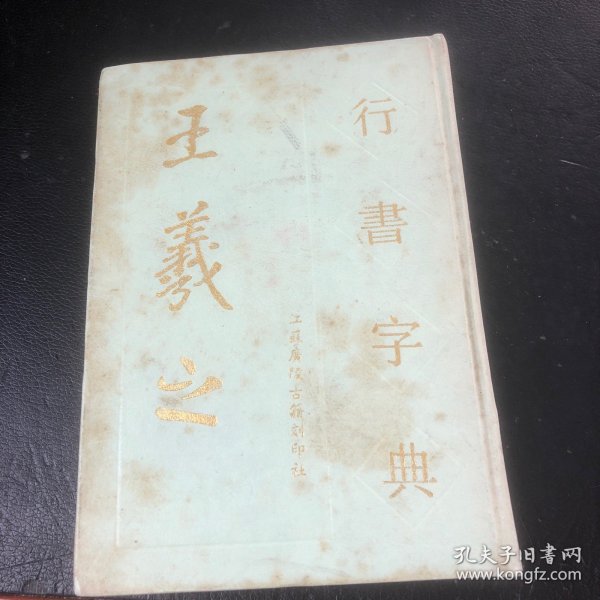 王羲之
行書字典
江蘇廣陵古籍刻印社
孔夫子旧書网
www.kongfz.com